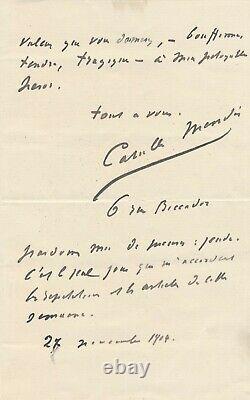 valeur que vous donnez, – bouffonne,
tendre, tragique – à mon pitoyable
héros.
tout à vous.
Catulle Mendès
6 rue Boccador
pardonnez moi de : jeudi.
C'est le seul jour que m'accordent
les répétitions et les articles de cette
semaine.
27 novembre 1904.
© eBay